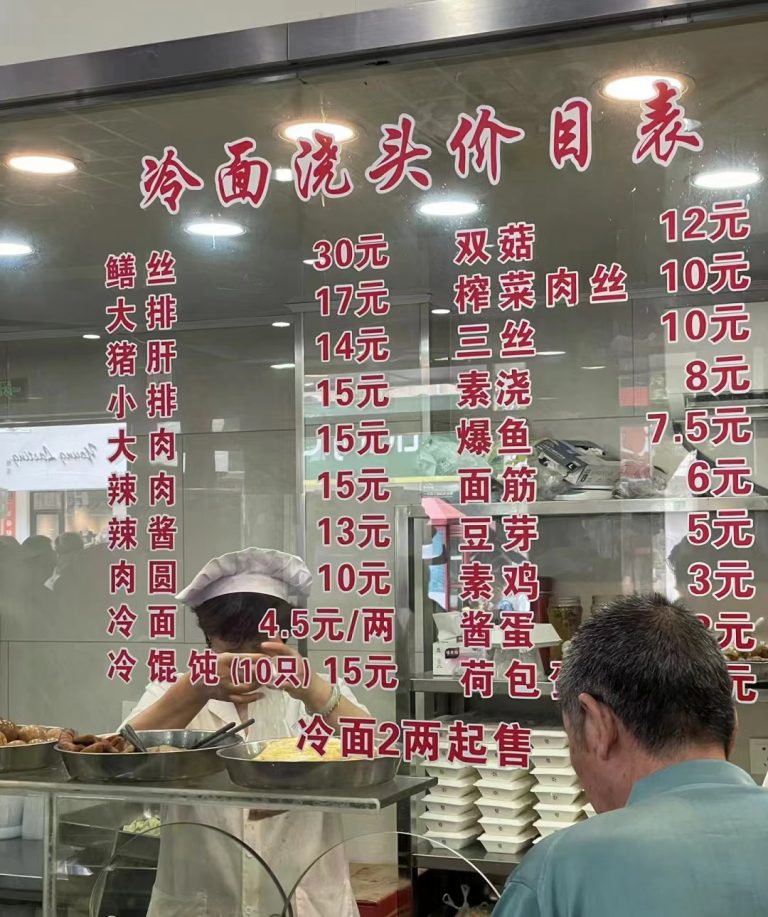 冷面浇头价目表
鳝丝 30元
大排 17元
猪肝 14元
小排 15元
大肉 15元
辣肉 15元
辣酱 13元
肉圆 10元
冷面 4.5元/两
冷馄饨(10只) 15元
双菇 12元
榨菜肉丝 10元
三丝 10元
素浇 8元
爆鱼 7.5元
面筋 6元
豆芽 5元
素鸡 3元
酱蛋 元
荷包 元
冷面2两起售
Young Lasting